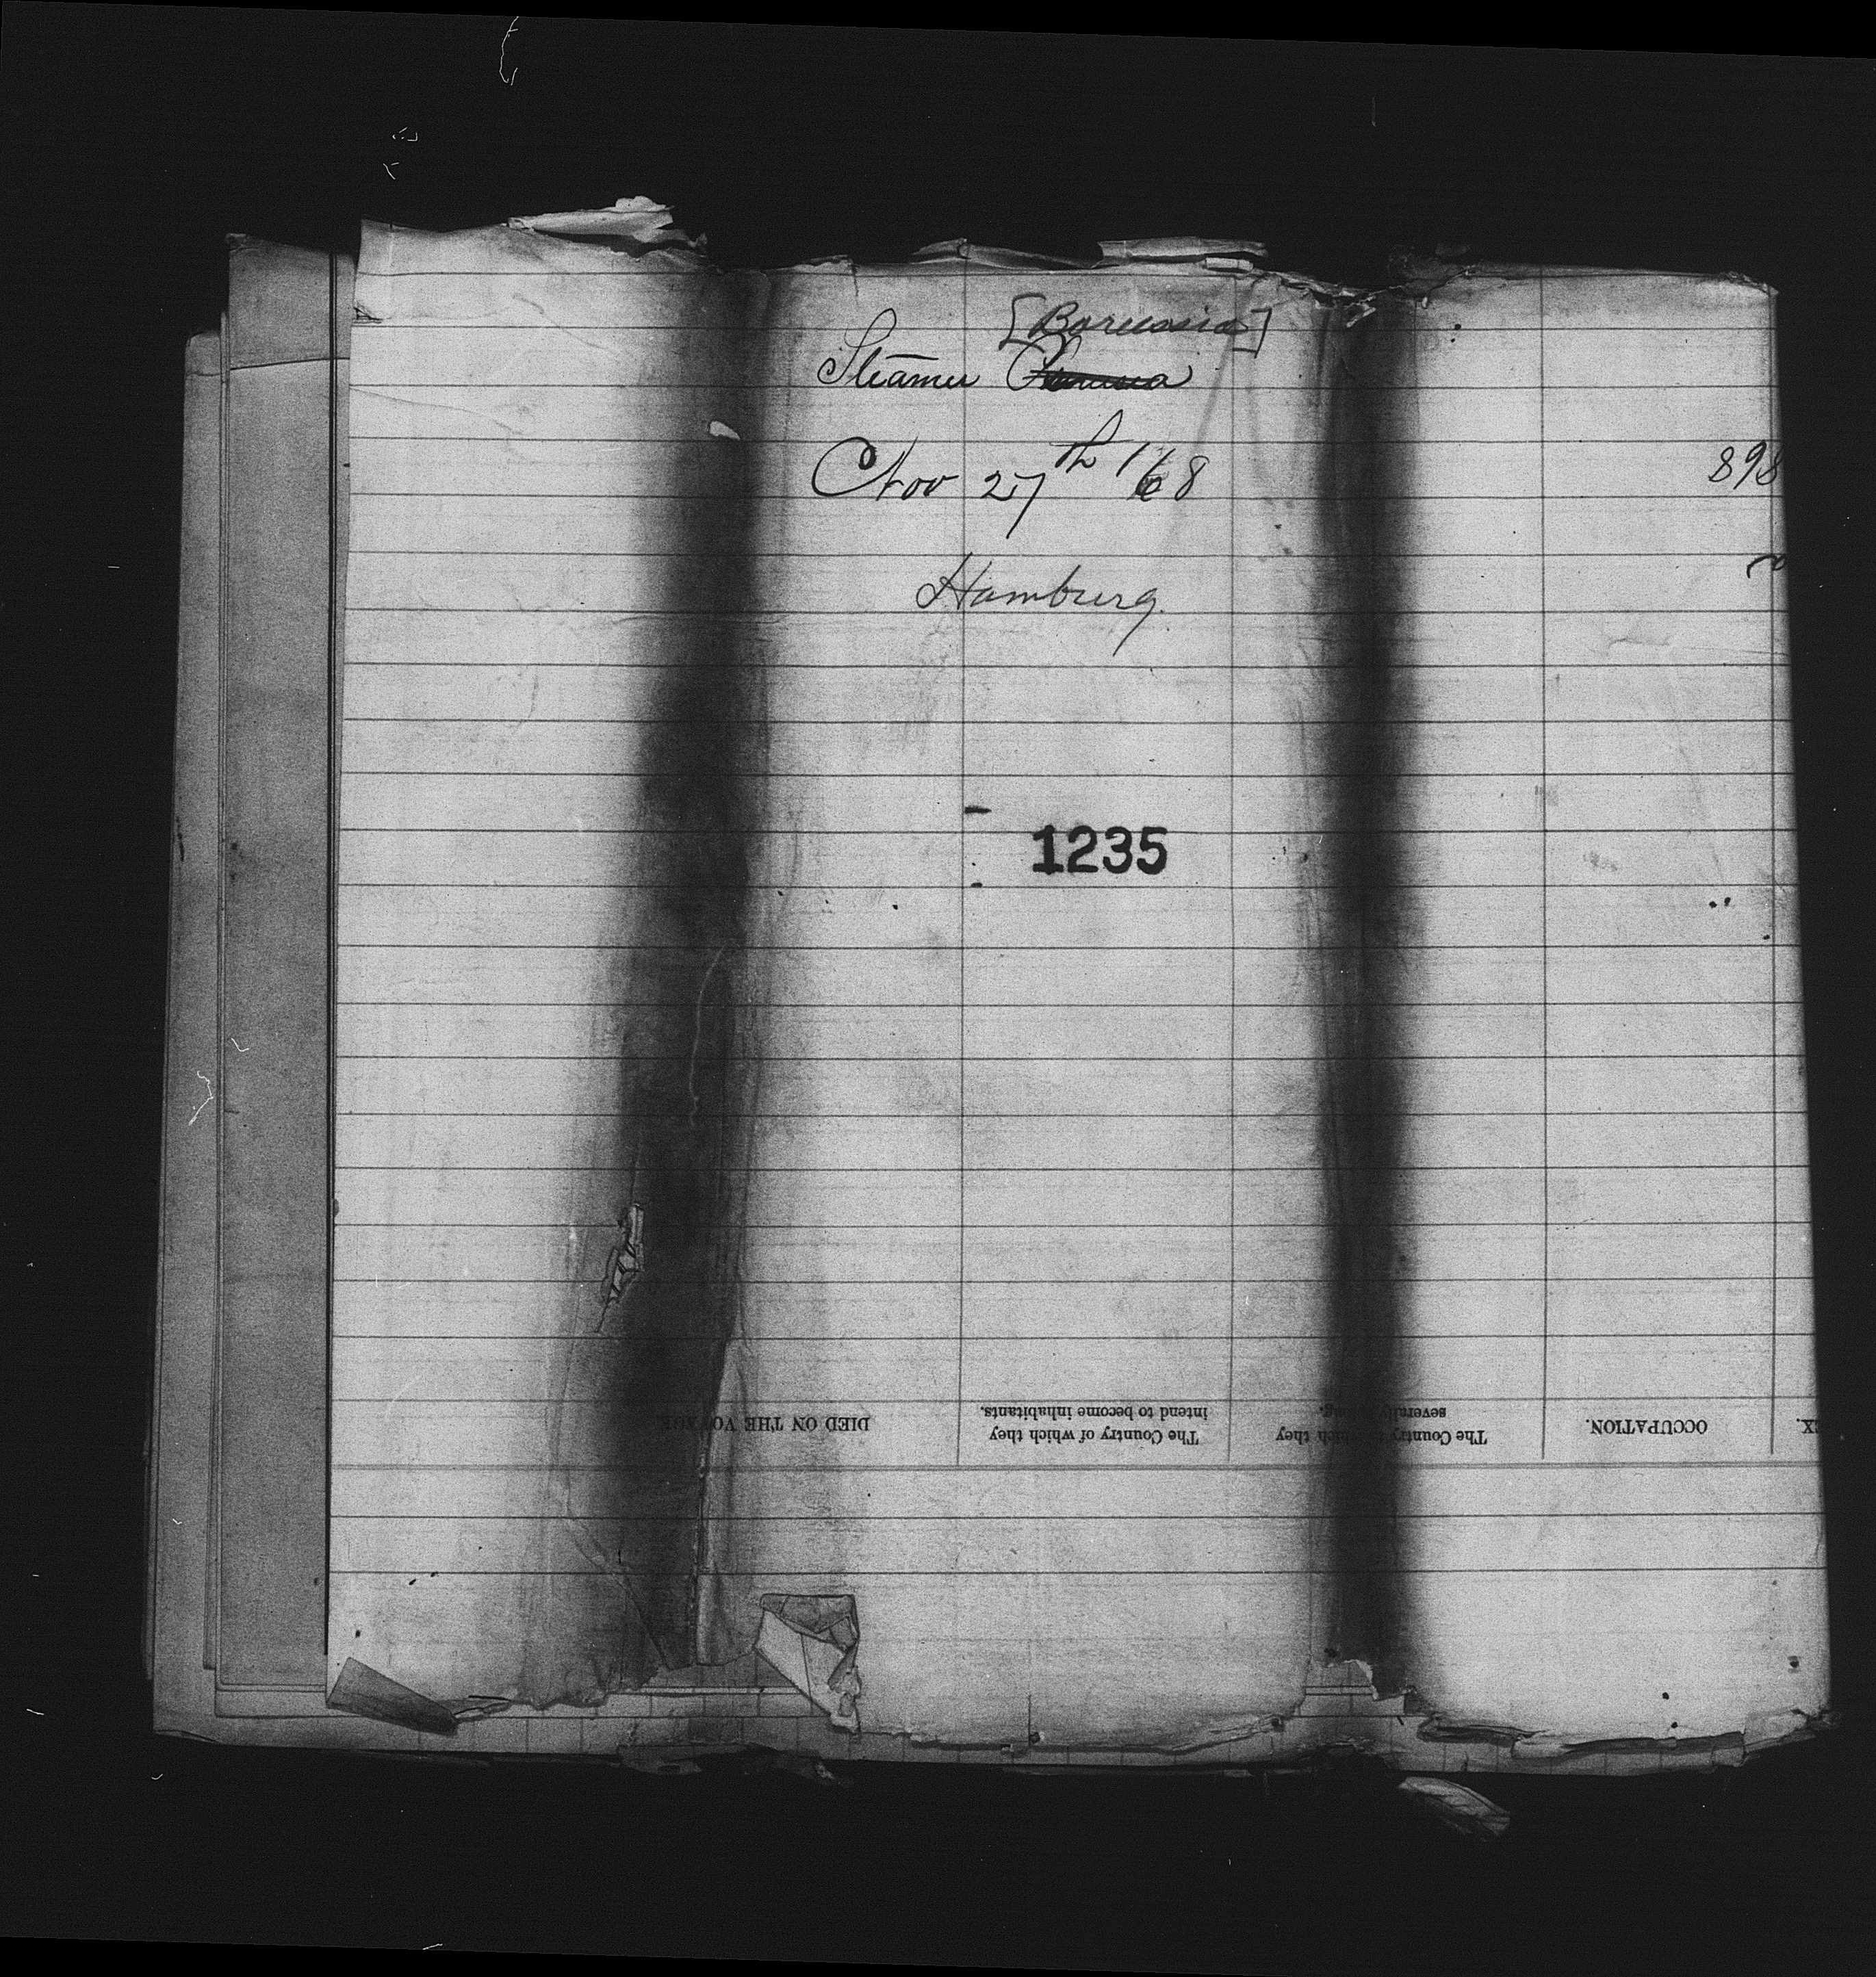 [Borussia]
Steamer
Nov 27th /68
898
Hamburg.
1235
DIED ON THE VOYAGE.
The Country of which they
intend to become inhabitants.
The Country to which they
severally belong.
OCCUPATION.
EX.